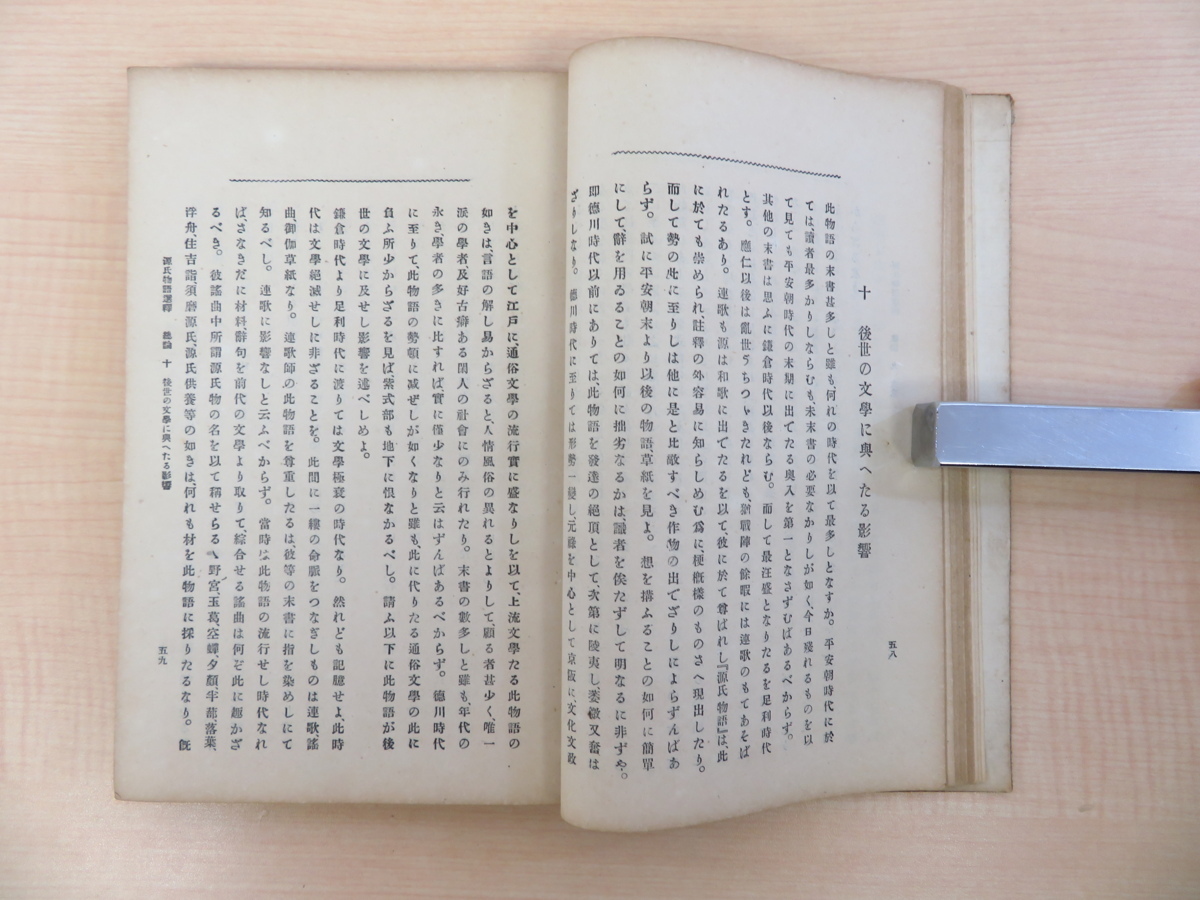 十　後世の文學に與へたる影響
此物語の末書甚多しと雖も、何れの時代を以て最多しとなすか。平安朝時代に於
ては、讀者最多かりしならむも、未末書の必要なかりしが如く、今日殘れるものを以
て見ても平安朝時代の末期に出でたる奧入を第一となさずむばあるべからず。
其他の末書は思ふに鎌倉時代以後ならむ。而して最汪盛となりたるを足利時代
とす。應仁以後は亂世うちつゞきたれども、猶戰陣の餘暇には連歌のもてあそば
れたるあり。連歌も源は和歌に出でたるを以て、彼に於て尊ばれし『源氏物語』は、此
に於ても崇められ、註釋の外容易に知らしめむ爲に、梗槪樣のものさへ現出したり。
而して勢の此に至りしは他に是と比敵すべき作物の出でざりしによらずんばあ
らず。試に平安朝末より以後の物語、草紙を見よ。想を搆ふることの如何に簡單
にして、辭を用ゐることの如何に拙劣なるかは、識者を俟たずして明なるに非ずや。
即德川時代以前にありては、此物語を發達の絕頂として、次第に陵夷し、萎微又奮は
ざりしなり。德川時代に至りては形勢一變し、元祿を中心として京阪に、文化文政
五八
を中心として江戸に、通俗文學の流行實に盛なりしを以て、上流文學たる此物語の
如きは、言語の解し易からざると、人情風俗の異れるとよりして、顧る者甚少く、唯一
派の學者及好古癖ある閑人の社會にのみ行れたり。末書の數多しと雖も、年代の
永き、學者の多きに比すれば、實に僅少なりと云はずんばあるべからず。德川時代
に至りて、此物語の勢頓に减ぜしが如くなりと雖も、此に代りたる通俗文學の此に
負ふ所少からざるを見ば、紫式部も地下に恨なかるべし。請ふ以下に此物語が後
世の文學に及せし影響を述べしめよ。
鎌倉時代より足利時代に渡りては文學極衰の時代なり。然れども記臆せよ、此時
代は文學絕滅せしに非ざることを。此間に一縷の命脈をつなぎしものは連歌謠
曲、御伽草紙なり。連歌師の此物語を尊重したるは、彼等の末書に指を染めしにて
知るべし。連歌に影響なしと云ふべからず。當時は此物語の流行せし時代なれ
ば、さなきだに材料辭句を前代の文學より取りて、綜合せる謠曲は何ぞ此に趣かざ
るべき。彼謠曲中所謂源氏物の名を以て稱せらるゝ野宮、玉葛、空蟬、夕顏、半蔀、落葉、
浮舟、住吉詣、須磨源氏、源氏供養等の如きは、何れも材を此物語に採りたるなり。旣
源氏物語選釋　總論　十　後世の文學に與へたる影響
五九